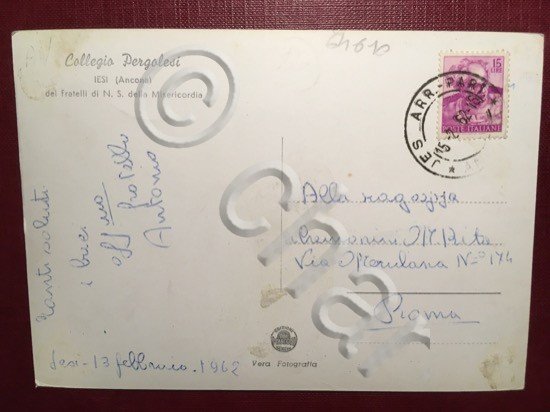 Collegio Pergolesi
IESI (Ancona)
dei Fratelli di N. S. della Misericordia
15
LIRE
POSTE ITALIANE
JESI ARR. PART.
Tanti saluti
e baci
aff mo
fratello
Antonio
Jesi - 13 febbraio 1962
Alla ragazza
M. Rita
Via Merulana N° 174
Roma
Vera Fotografia
© char